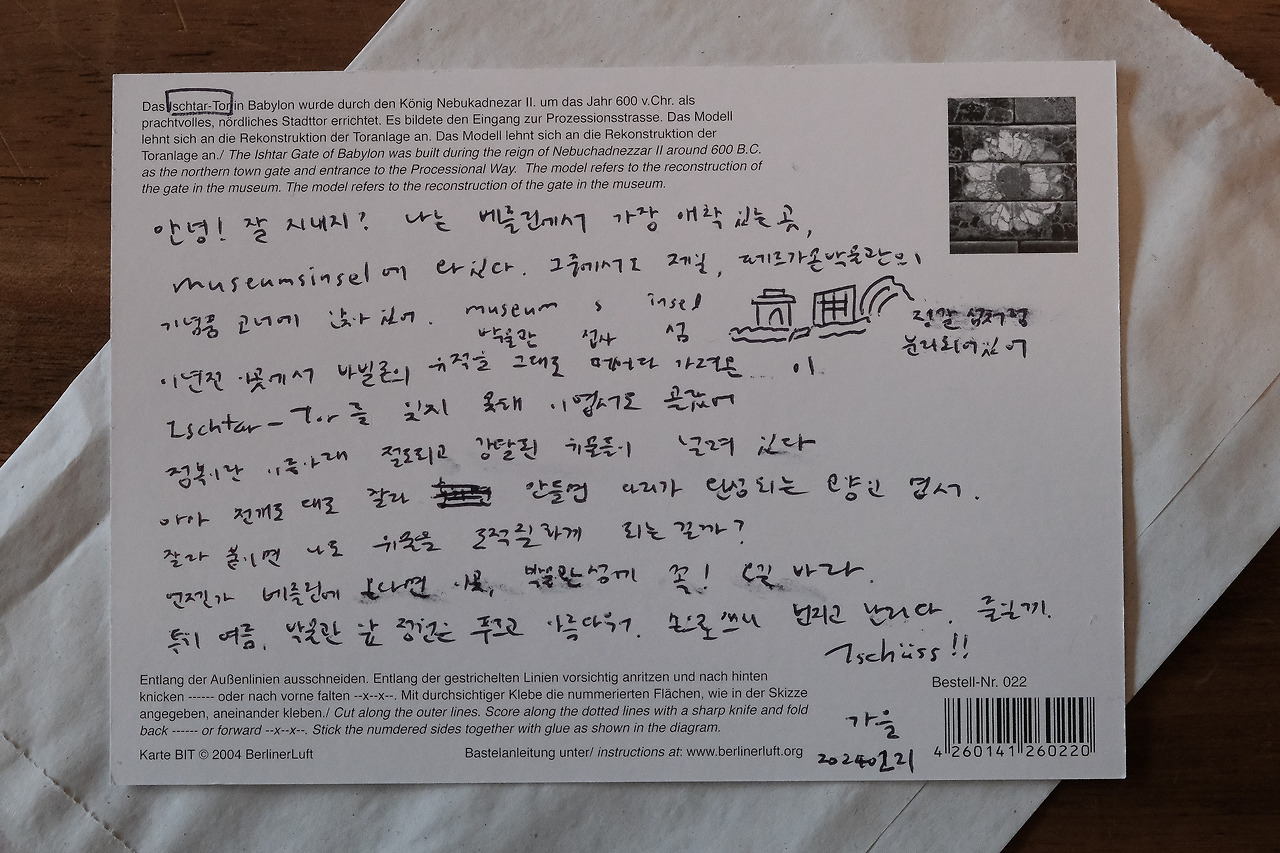 Das Ischtar-Tor in Babylon wurde durch den König Nebukadnezar II. um das Jahr 600 v.Chr. als
prachtvolles, nördliches Stadttor errichtet. Es bildete den Eingang zur Prozessionsstrasse. Das Modell
lehnt sich an die Rekonstruktion der Toranlage an. Das Modell lehnt sich an die Rekonstruktion der
Toranlage an./ The Ishtar Gate of Babylon was built during the reign of Nebuchadnezzar II around 600 B.C.
as the northern town gate and entrance to the Processional Way. The model refers to the reconstruction of
the gate in the museum. The model refers to the reconstruction of the gate in the museum.
안녕! 잘 지내지? 나는 베를린에서 가장 애착 있는 곳,
museumsinsel에 와있다. 그중에서도 제일, 페르가몬박물관의
기념품 코너에 앉아 있어. museum s insel
박물관 접사 섬
정말 섬처럼
분리되어있어
이년전 이곳에서 바빌론의 유적을 그대로 떼어다 가져온 이
Ischtar-Tor를 잊지 못해 이 엽서도 골랐어
정복이란 이름아래 절도되고 강탈된 유물들이 널려 있다
아마 전개도 대로 잘라 만들면 다리가 완성되는 모양인 엽서.
잘라 붙이면 나도 유물을 도적질하게 되는걸까?
언젠가 베를린에 온다면 이곳, 박물관섬에 꼭! 오길 바라.
특히 여름, 박물관 앞 정원은 푸르고 아름다워. 손으로 쓰니 번지고 난리다. 줄일게.
Tschüss!!
Entlang der Außenlinien ausschneiden. Entlang der gestrichelten Linien vorsichtig anritzen und nach hinten
knicken ------ oder nach vorne falten --x--x--. Mit durchsichtiger Klebe die nummerierten Flächen, wie in der Skizze
angegeben, aneinander kleben./ Cut along the outer lines. Score along the dotted lines with a sharp knife and fold
back ------ or forward --x--x--. Stick the numdered sides together with glue as shown in the diagram.
Karte BIT © 2004 BerlinerLuft
Bastelanleitung unter/ instructions at: www.berlinerluft.org
가을
Bestell-Nr. 022
4 260141 260220